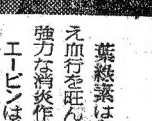 葉緑素は
え血行を旺ん
強力な消炎作
エービンは